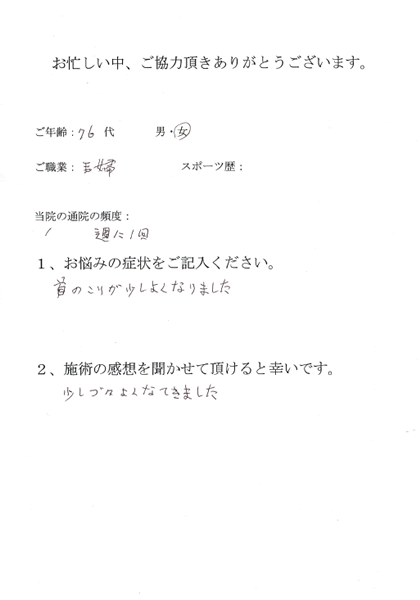 お忙しい中、ご協力頂きありがとうございます。
ご年齢：76 代　男・女
ご職業：主婦　スポーツ歴：
当院の通院の頻度：
週に1回
1、お悩みの症状をご記入ください。
首のこりが少しよくなりました
2、施術の感想を聞かせて頂けると幸いです。
少しづつよくなてきました